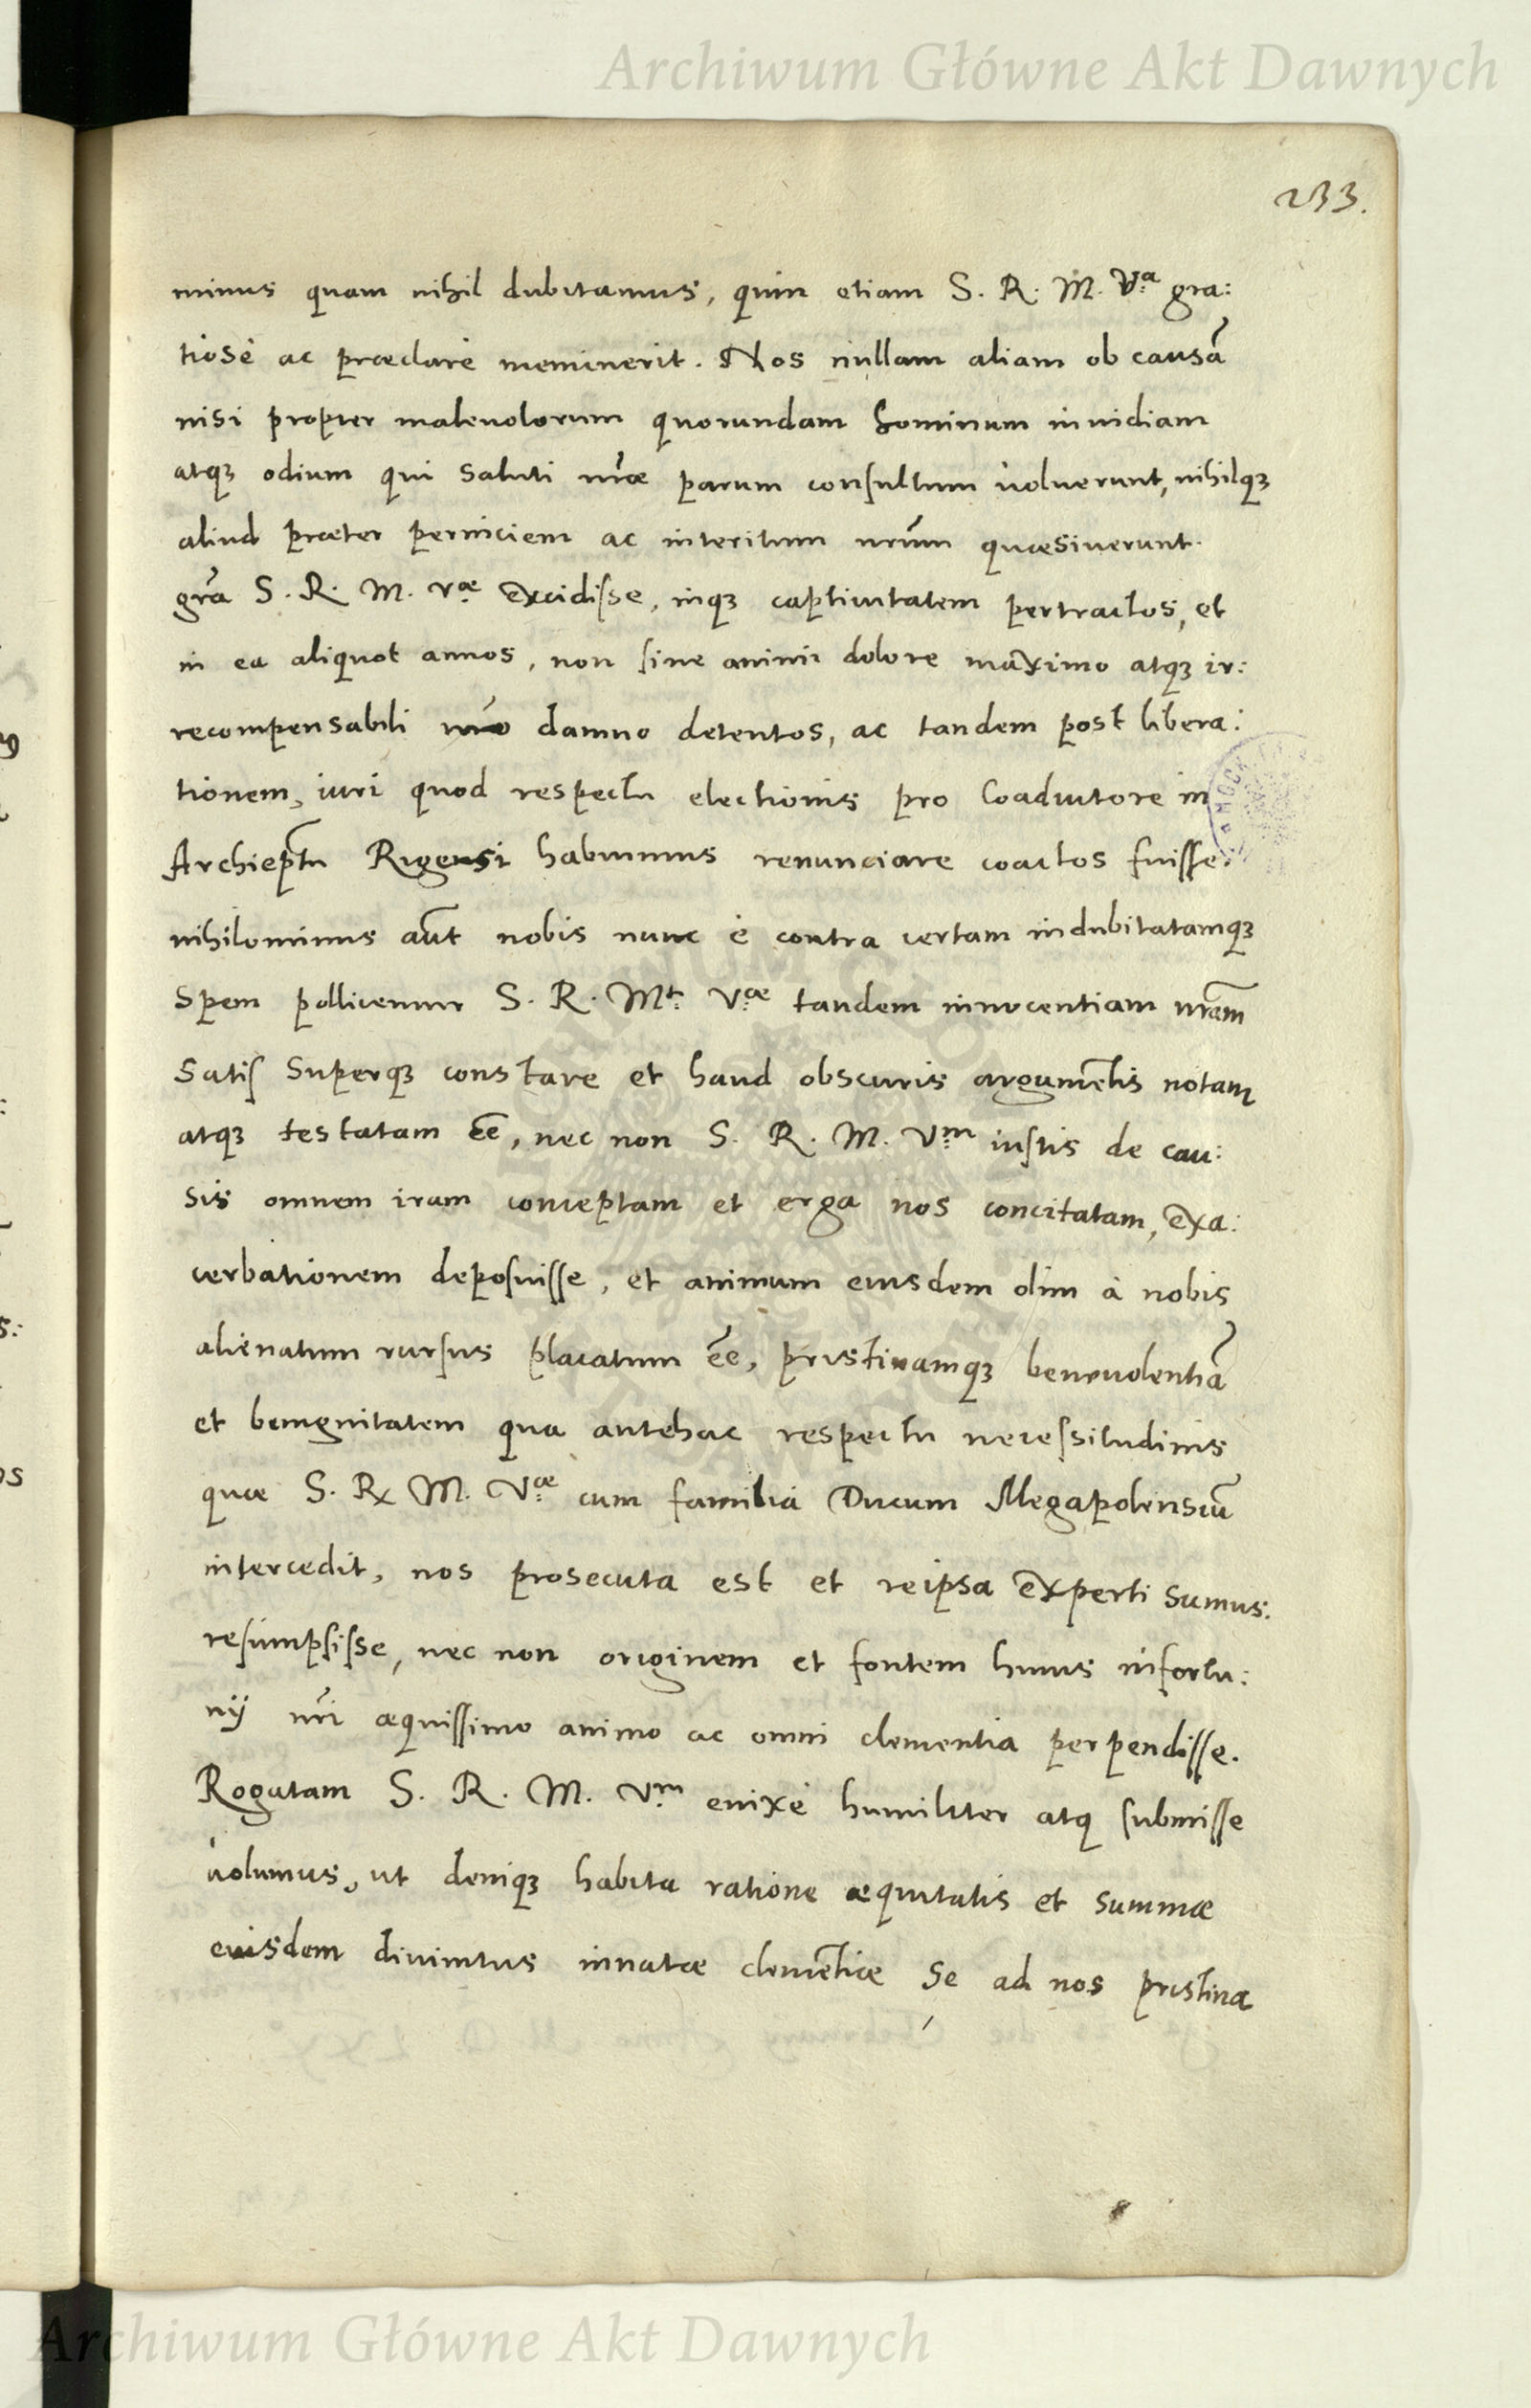 Archiwum Główne Akt Dawnych
233.
minus quam nihil dubitamus, quin etiam S. R. M. Vᵃ gra:
tiosè ac præclarè meminerit. Nos nullam aliam ob causā
nisi propter maleuolorum quorundam hominum inuidiam
atqꝫ odium qui saluti nr̃æ parum consultum uoluerunt, nihilqꝫ
aliud præter perniciem ac interitum nrũm quæsiuerunt.
gr̃a S. R. M. Vᵃᵉ excidiſse, inqꝫ captiuitatem pertractos, et
in ea aliquot annos, non ſine animi dolore maximo atqꝫ ir:
recompensabili nr̃o damno detentos, ac tandem post libera:
tionem, iuri quod respectu electionis pro Coadiutore in
Archiepr̃tu Rigensi habuimus renunciare coactos fuiſſe.
nihilominus aũt nobis nunc è contra certam indubitatamqꝫ
Spem pollicemur S. R. Mᵗ. Vᵃᵉ tandem innocentiam nr̃am
Satiſ Superqꝫ constare et haud obscuris argumẽtis notam
atqꝫ testatam ẽe, nec non S. R. M. Vᵐ iuſtis de cau:
sis omnem iram conceptam et erga nos concitatam, exa:
cerbationem depoſuiſſe, et animum eiusdem olim à nobis
alienatum rurſus placatum ẽe, pristinamqꝫ beneuolentiã
et benignitatem qua antehac respectu neceſsitudinis
quæ S. R. M. Vᵃᵉ cum familia Ducum Megapolensiũ
intercedit, nos prosecuta est et reipsa experti sumus.
reſumpſiſse, nec non originem et fontem huius infortu:
nij nr̃i æquiſſimo animo ac omni clementia perpendiſſe.
Rogatam S. R. M. Vᵐ enixè humiliter atq ſubmiſſe
uolumus, ut deniqꝫ habita ratione æquitatis et summæ
eiusdem diuinitus innatæ clemẽtiæ se ad nos pristina
Archiwum Główne Akt Dawnych